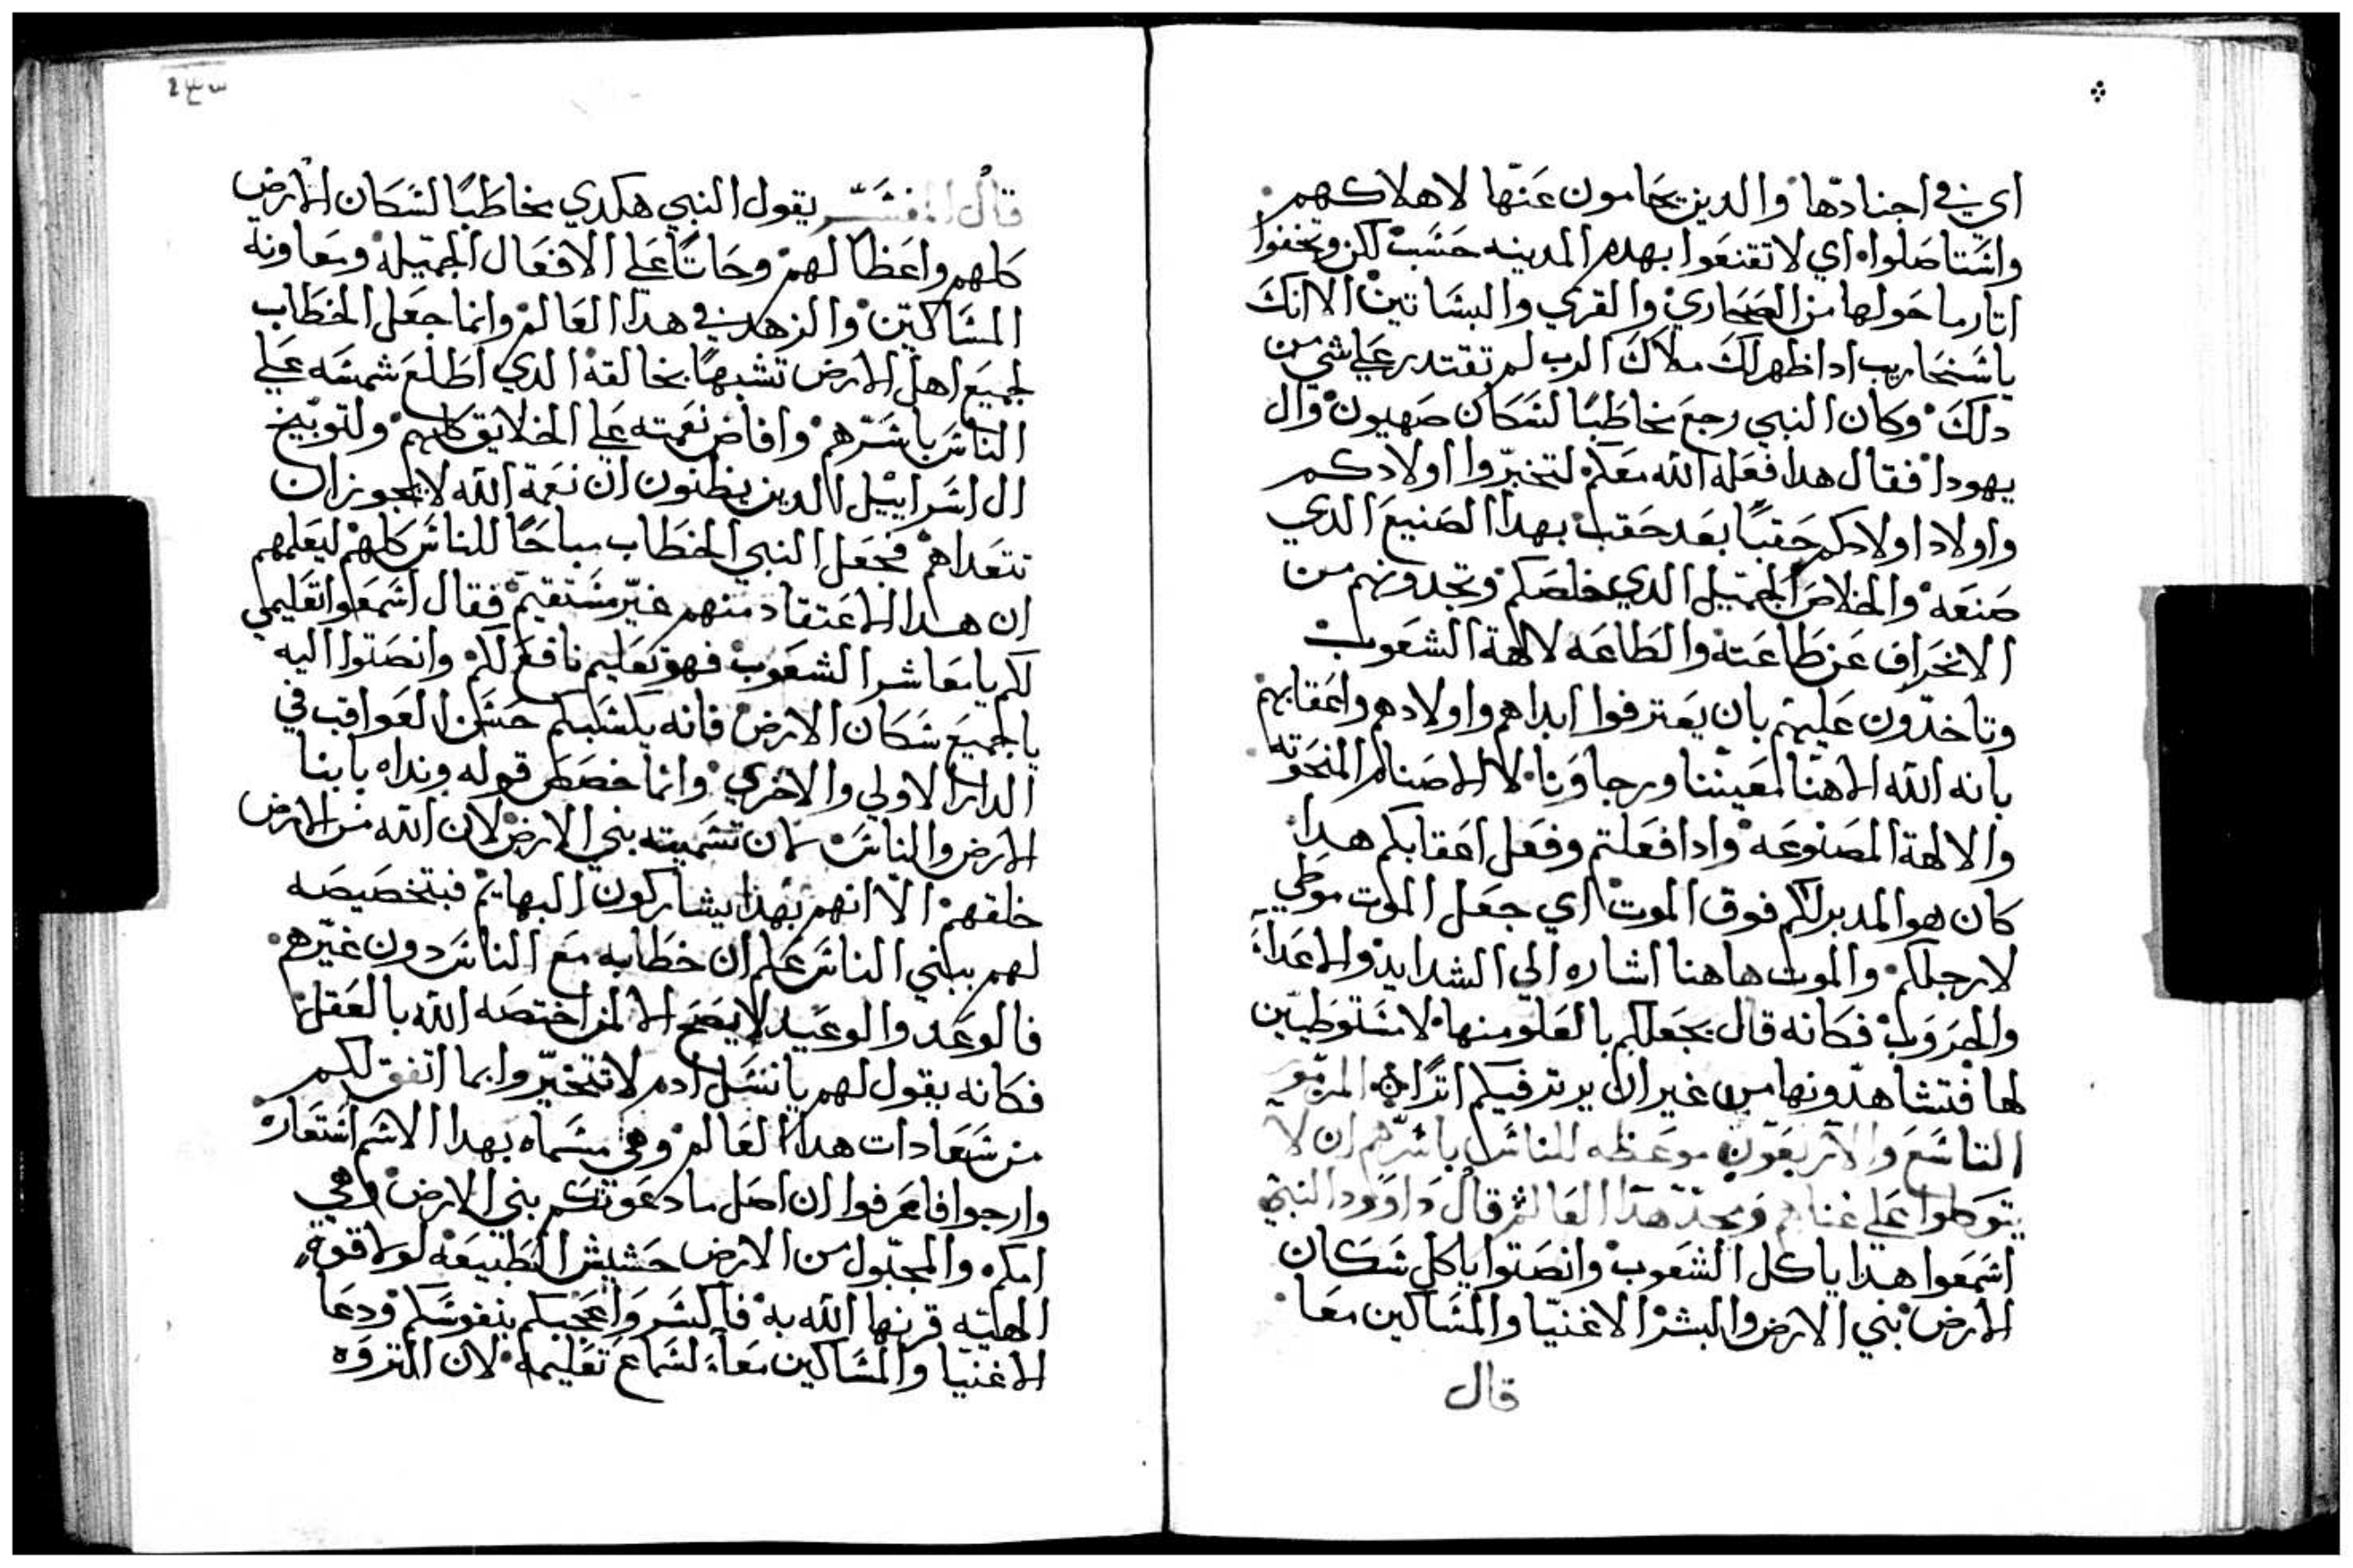 اي في اجنادها والدين يحامون عنها لاهلاكهم
واستاصلوا اي لا تقنعوا بهده المدينه حسب لكن وتخفوا
اتار ما حولها من الصحاري والقري والبساتين الا انك
يا سنحاريب ادا ظهر لك ملاك الرب لم تقتدر علي شي من
دلك وكان النبي رجع مخاطبًا لسكان صهيون وال
يهودا فقال هدا فعله الله معكم لتخبروا اولادكم
واولاد اولادكم حقبًا بعد حقب بهدا الصنيع الدي
صنعه والخلاص الجميل الدي خلصكم وتجدونهم من
الانحراف عن طاعته والطاعه لالهة الشعوب
وتاخدون عليهم بان يعترفوا ابداهم واولادهم واعقابهم
بانه الله الاهنا لمعيننا ورجاونا لا الاصنام المنحوته
والالهة المصنوعه وادا فعلتم وفعل اعقابكم هدا
كان هو المدبر لكم فوق الموت اي جعل الموت موطي
لارجلكم والموت هاهنا اشاره الي الشدايد والاعداء
والحروب فكانه قال يجعلكم بالعلو منها لا مستوطيين
لها فتشاهدونها من غير ان يوتر فيكم اترًا المزمور
التاسع والاربعون موعظه للناس باسرهم ان لا
يتوكلوا علي غناهم ومجد هدا العالم قال داوود النبي
اسمعوا هدا يا كل الشعوب وانصتوا يا كل سكان
الارض بني الارض والبشر الاغنيا والمساكين معا
قال
قال المفسر يقول النبي هكدي مخاطبًا لسكان الارض
كلهم واعظا لهم وحاتًا علي الافعال الجميله ومعاونة
المساكين والزهد في هدا العالم وانما جعل الخطاب
لجميع اهل الارض تشبهًا بخالقه الدي اطلع شمسه علي
الناس باسرهم وافاض نعمته علي الخلايق كلهم ولتوبيخ
ال اسراييل الدين يظنون ان نعمة الله لا يجوز ان
تتعداهم فجعل النبي الخطاب مباحًا للناس كلهم ليعلمهم
ان هدا الاعتقاد منهم غير مستقيم فقال اسمعوا تعليمي
لكم يا معاشر الشعوب فهو تعليم نافع لكم وانصتوا اليه
يا جميع سكان الارض فانه يكسبكم حسن العواقب في
الدار الاولي والاخري وانما خصص قوله ونداه يا بنا
الارض والناس لان تسميته بني الارض لان الله من الارض
خلقهم الا انهم بهدا يشاركون البهايم فبتخصيصه
لهم ببني الناس علم ان خطابه مع الناس دون غيرهم
فالوعد والوعيد لا يصح الا لمن اختصه الله بالعقل
فكانه يقول لهم يا نسل ادم لا تتخيروا بما اتفق لكم
من سعادات هدا العالم وهي مسماه بهدا الاسم استعارة
وارجوا فاعرفوا ان اصل ما دعوتكم بني الارض اهي
امكم والمجبول من الارض حشيش الطبيعه لولا قوة
الهيه قرنها الله به فاكسر واعجبكم بنفوسكم ودعا
الاغنيا والمساكين معًا لسماع تعليمه لان التروه